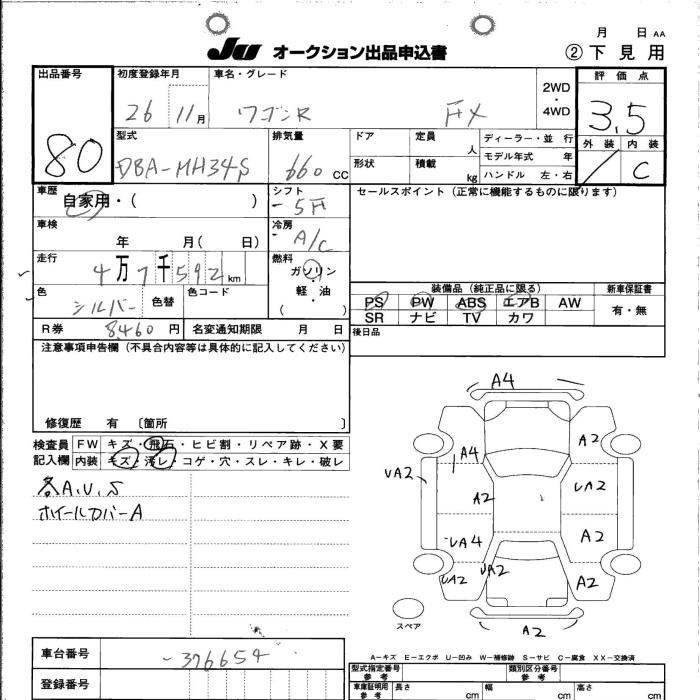 月 日 AA
JU オークション出品申込書 ② 下見用
出品番号 初度登録年月 車名・グレード 2WD・4WD 評価点
80 26 11月 ワゴンR FX 3.5
型式 排気量 ドア 定員 人 ディーラー・並行 外装 内装
DBA-MH34S 660 CC 形状 積載 kg モデル年式 年 / C
ハンドル 左・右
車歴 自家用・( ) シフト セールスポイント(正常に機能するものに限ります)
-5F
車検 年 月( 日) 冷房 A/C
走行 4万7千592km 燃料 ガソリン・軽・油 ( )
装備品(純正品に限る) 新車保証書
色 シルバー 色替 色コード PS PW ABS エアB AW 有・無
SR ナビ TV カワ
R券 8460円 名変通知期限 月 日 後日品
注意事項申告欄(不具合内容等は具体的に記入してください)
修復歴 有 〔箇所 〕
検査員 FW キズ・飛石・ヒビ割・リペア跡・X要
記入欄 内装 キズ・汚レ・コゲ・穴・スレ・キレ・破レ
各A.U.S
ホイールカバーA
A4
A4 A2
UA2 A2 UA2
UA4 A2
UA2 UA2 A2
A2
スペア
A-キズ E-エクボ U-凹み W-補修跡 S-サビ C-腐食 XX-交換済
車台番号 -376654
型式指定番号 参考 類別区分番号 参考
登録番号 車庫証明用 参考 長さ cm 幅 cm 高さ cm